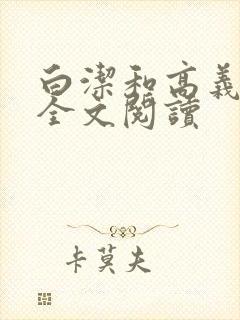 白潔和高義
全文閱讀
卡莫夫